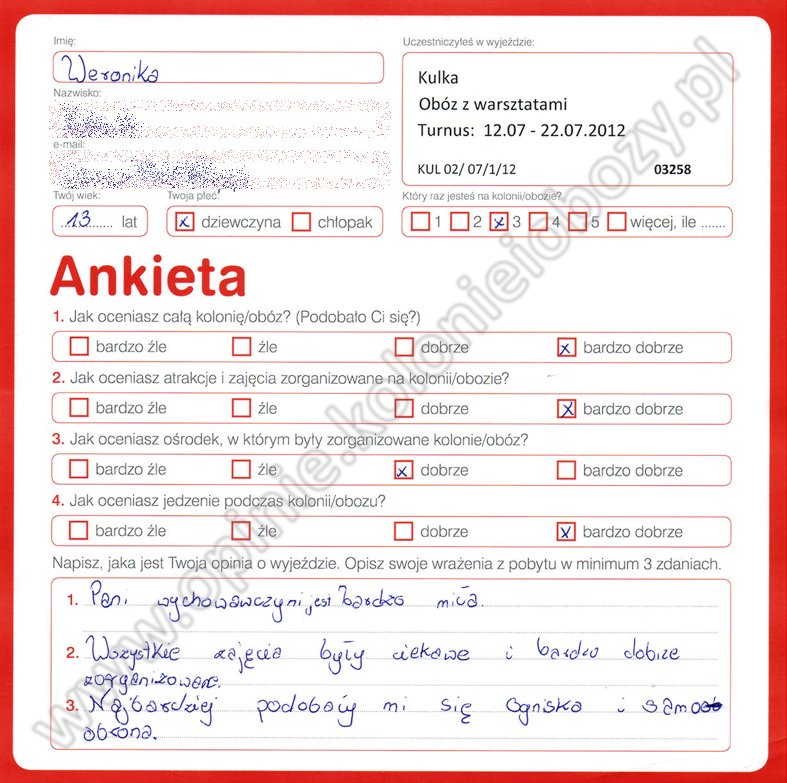 Imię:
Weronika
Nazwisko:
e-mail:
Twój wiek:
13 lat
Twoja płeć:
x dziewczyna chłopak
Uczestniczyłeś w wyjeździe:
Kulka
Obóz z warsztatami
Turnus: 12.07 - 22.07.2012
KUL 02/ 07/1/12 03258
Który raz jesteś na kolonii/obozie?
1 2 x 3 4 5 więcej, ile .......
Ankieta
1. Jak oceniasz całą kolonię/obóz? (Podobało Ci się?)
bardzo źle źle dobrze x bardzo dobrze
2. Jak oceniasz atrakcje i zajęcia zorganizowane na kolonii/obozie?
bardzo źle źle dobrze x bardzo dobrze
3. Jak oceniasz ośrodek, w którym były zorganizowane kolonie/obóz?
bardzo źle źle x dobrze bardzo dobrze
4. Jak oceniasz jedzenie podczas kolonii/obozu?
bardzo źle źle dobrze x bardzo dobrze
Napisz, jaka jest Twoja opinia o wyjeździe. Opisz swoje wrażenia z pobytu w minimum 3 zdaniach.
1. Pani wychowawczyni jest bardzo miła.
2. Wszystkie zajęcia były ciekawe i bardzo dobrze
zorganizowane.
3. Najbardziej podobały mi się ogniska i samo
obrona.
www.opinie.kolonieiobozy.pl